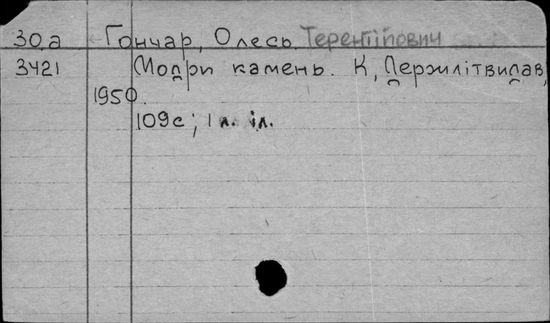 30,а Гончар, Олесь Терентійович
3421 Модри камень. К, Держлітвидав,
1950.
109с; 1 л. іл.